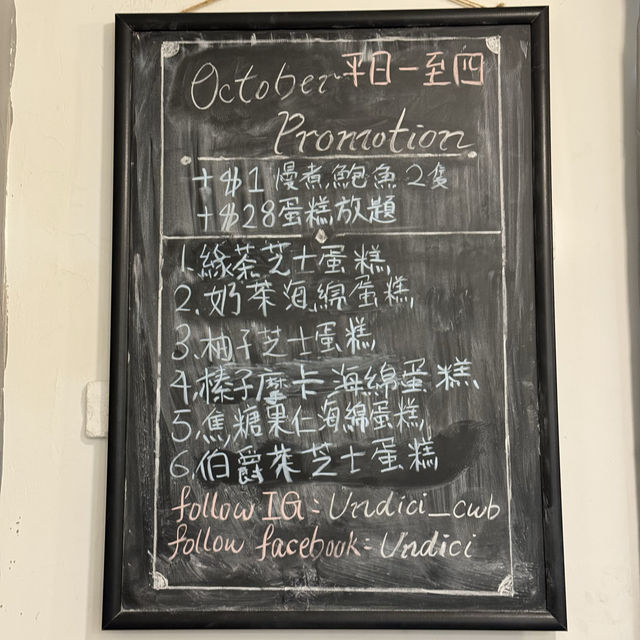 October 平日一至四
Promotion
+$1 慢煮鮑魚2隻
+$28蛋糕放題
1.綠茶芝士蛋糕
2.奶茶海綿蛋糕
3.柚子芝士蛋糕
4.榛子摩卡海綿蛋糕
5.焦糖果仁海綿蛋糕
6.伯爵茶芝士蛋糕
follow IG: Undici_cwb
follow facebook: Undici